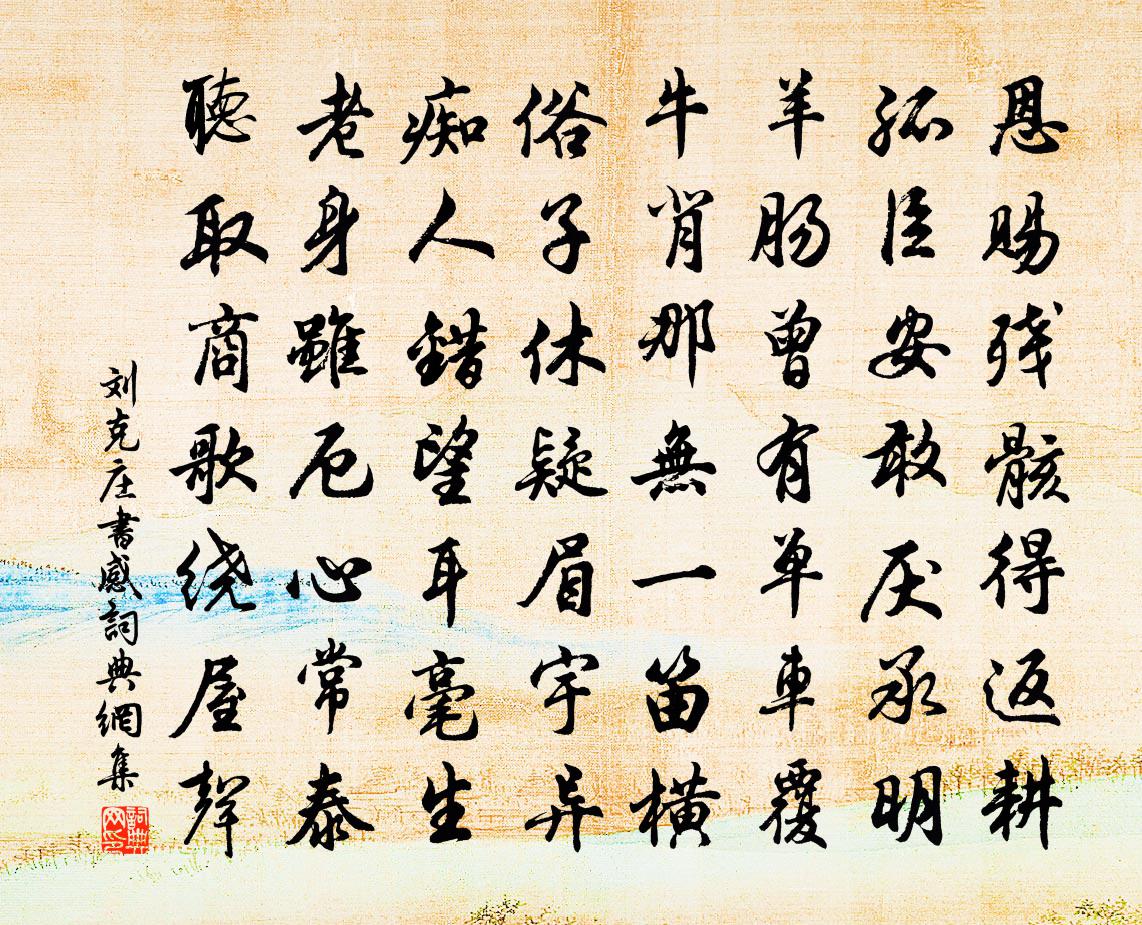 恩赐残骸得返耕
孤臣安敢厌承明
羊肠曾有单车覆
牛背那無一笛横
俗子休疑眉宇异
痴人錯望耳毫生
老身雖厄心常泰
聽取商歌绕屋聲
刘克庄書感詞典網集
詞典網印